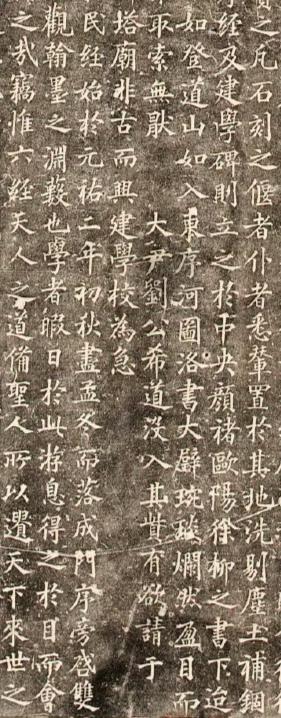 之凡石刻之偃者仆者悉輦置於其地洗剔塵土補錮
經及建學碑則立之於中央顏褚歐陽徐柳之書下迨
如登道山如入東序河圖洛書大璧琬琰爛然盈目而
取索無厭 大尹劉公希道沒入其貲有欲請于
塔廟非古而興建學校為急
民經始於元祐二年初秋盡孟冬而落成門序旁啓雙
觀翰墨之淵藪也學者暇日於此游息得之於目而會
之哉竊惟六經天人之道備聖人所以遺天下來世之